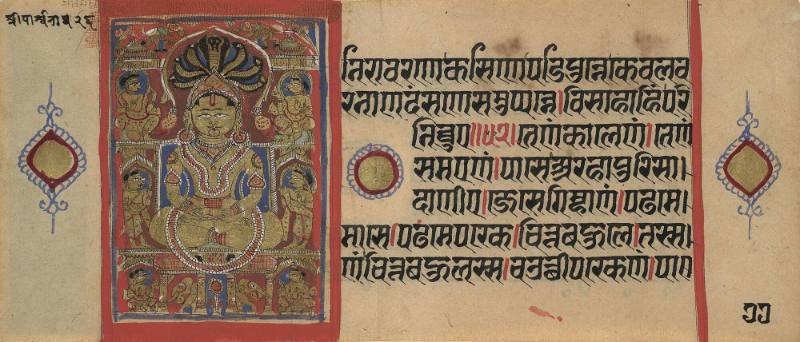 श्रीपार्श्वनाथ २६
निरावरणे कसिणे पडिपुन्ने केवलव
रनाणदंसणे समुप्पन्ने। विसाहाहिं परि
निव्वुए तेणं कालेणं। तेणं
समएणं। पासे अरहा पुरिसा।
दाणीए। जे से गिम्हाणं। पढमे।
मासे। पढमे पक्खे। चित्तबहुले। तस्स।
णं चित्तबहुलस्स। चउत्थीपक्खेणं।